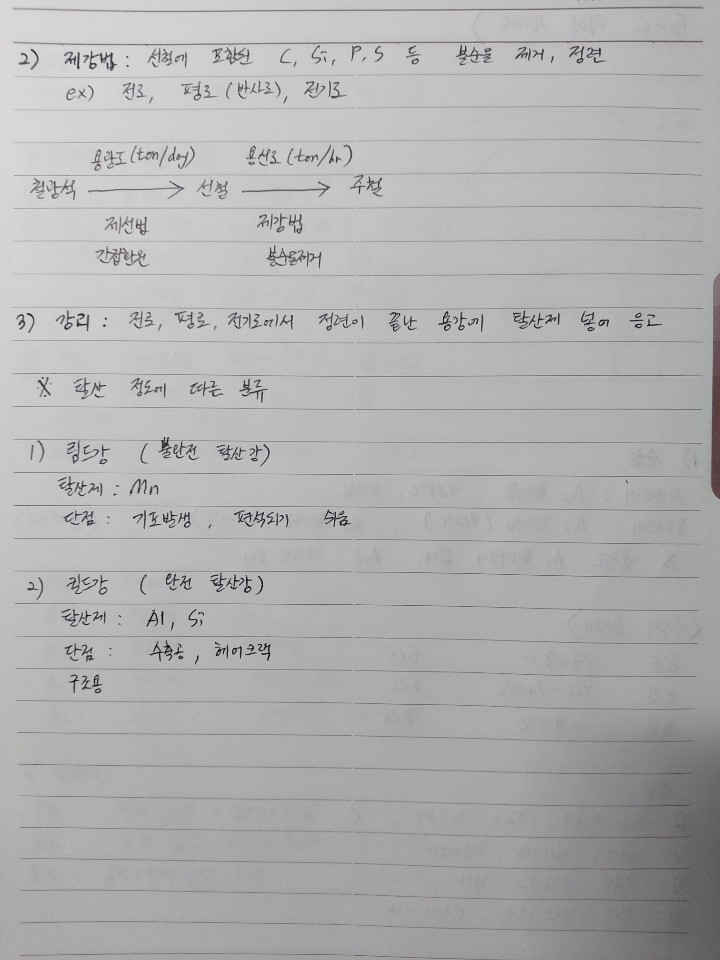 2) 제강법 : 선철에 포함된 C, Si, P, S 등 불순물 제거, 정련
ex) 전로, 평로 (반사로), 전기로
용광로 (ton/day) 용선로 (ton/hr)
철광석 → 선철 → 주철
제선법 제강법
간접환원 불순물제거
3) 강괴 : 전로, 평로, 전기로에서 정련이 끝난 용강에 탈산제 넣어 응고
※ 탈산 정도에 따른 분류
1) 림드강 (불완전 탈산강)
탈산제 : Mn
단점 : 기포발생, 편석되기 쉬움
2) 킬드강 (완전 탈산강)
탈산제 : Al, Si
단점 : 수축공, 헤어크랙
구조용